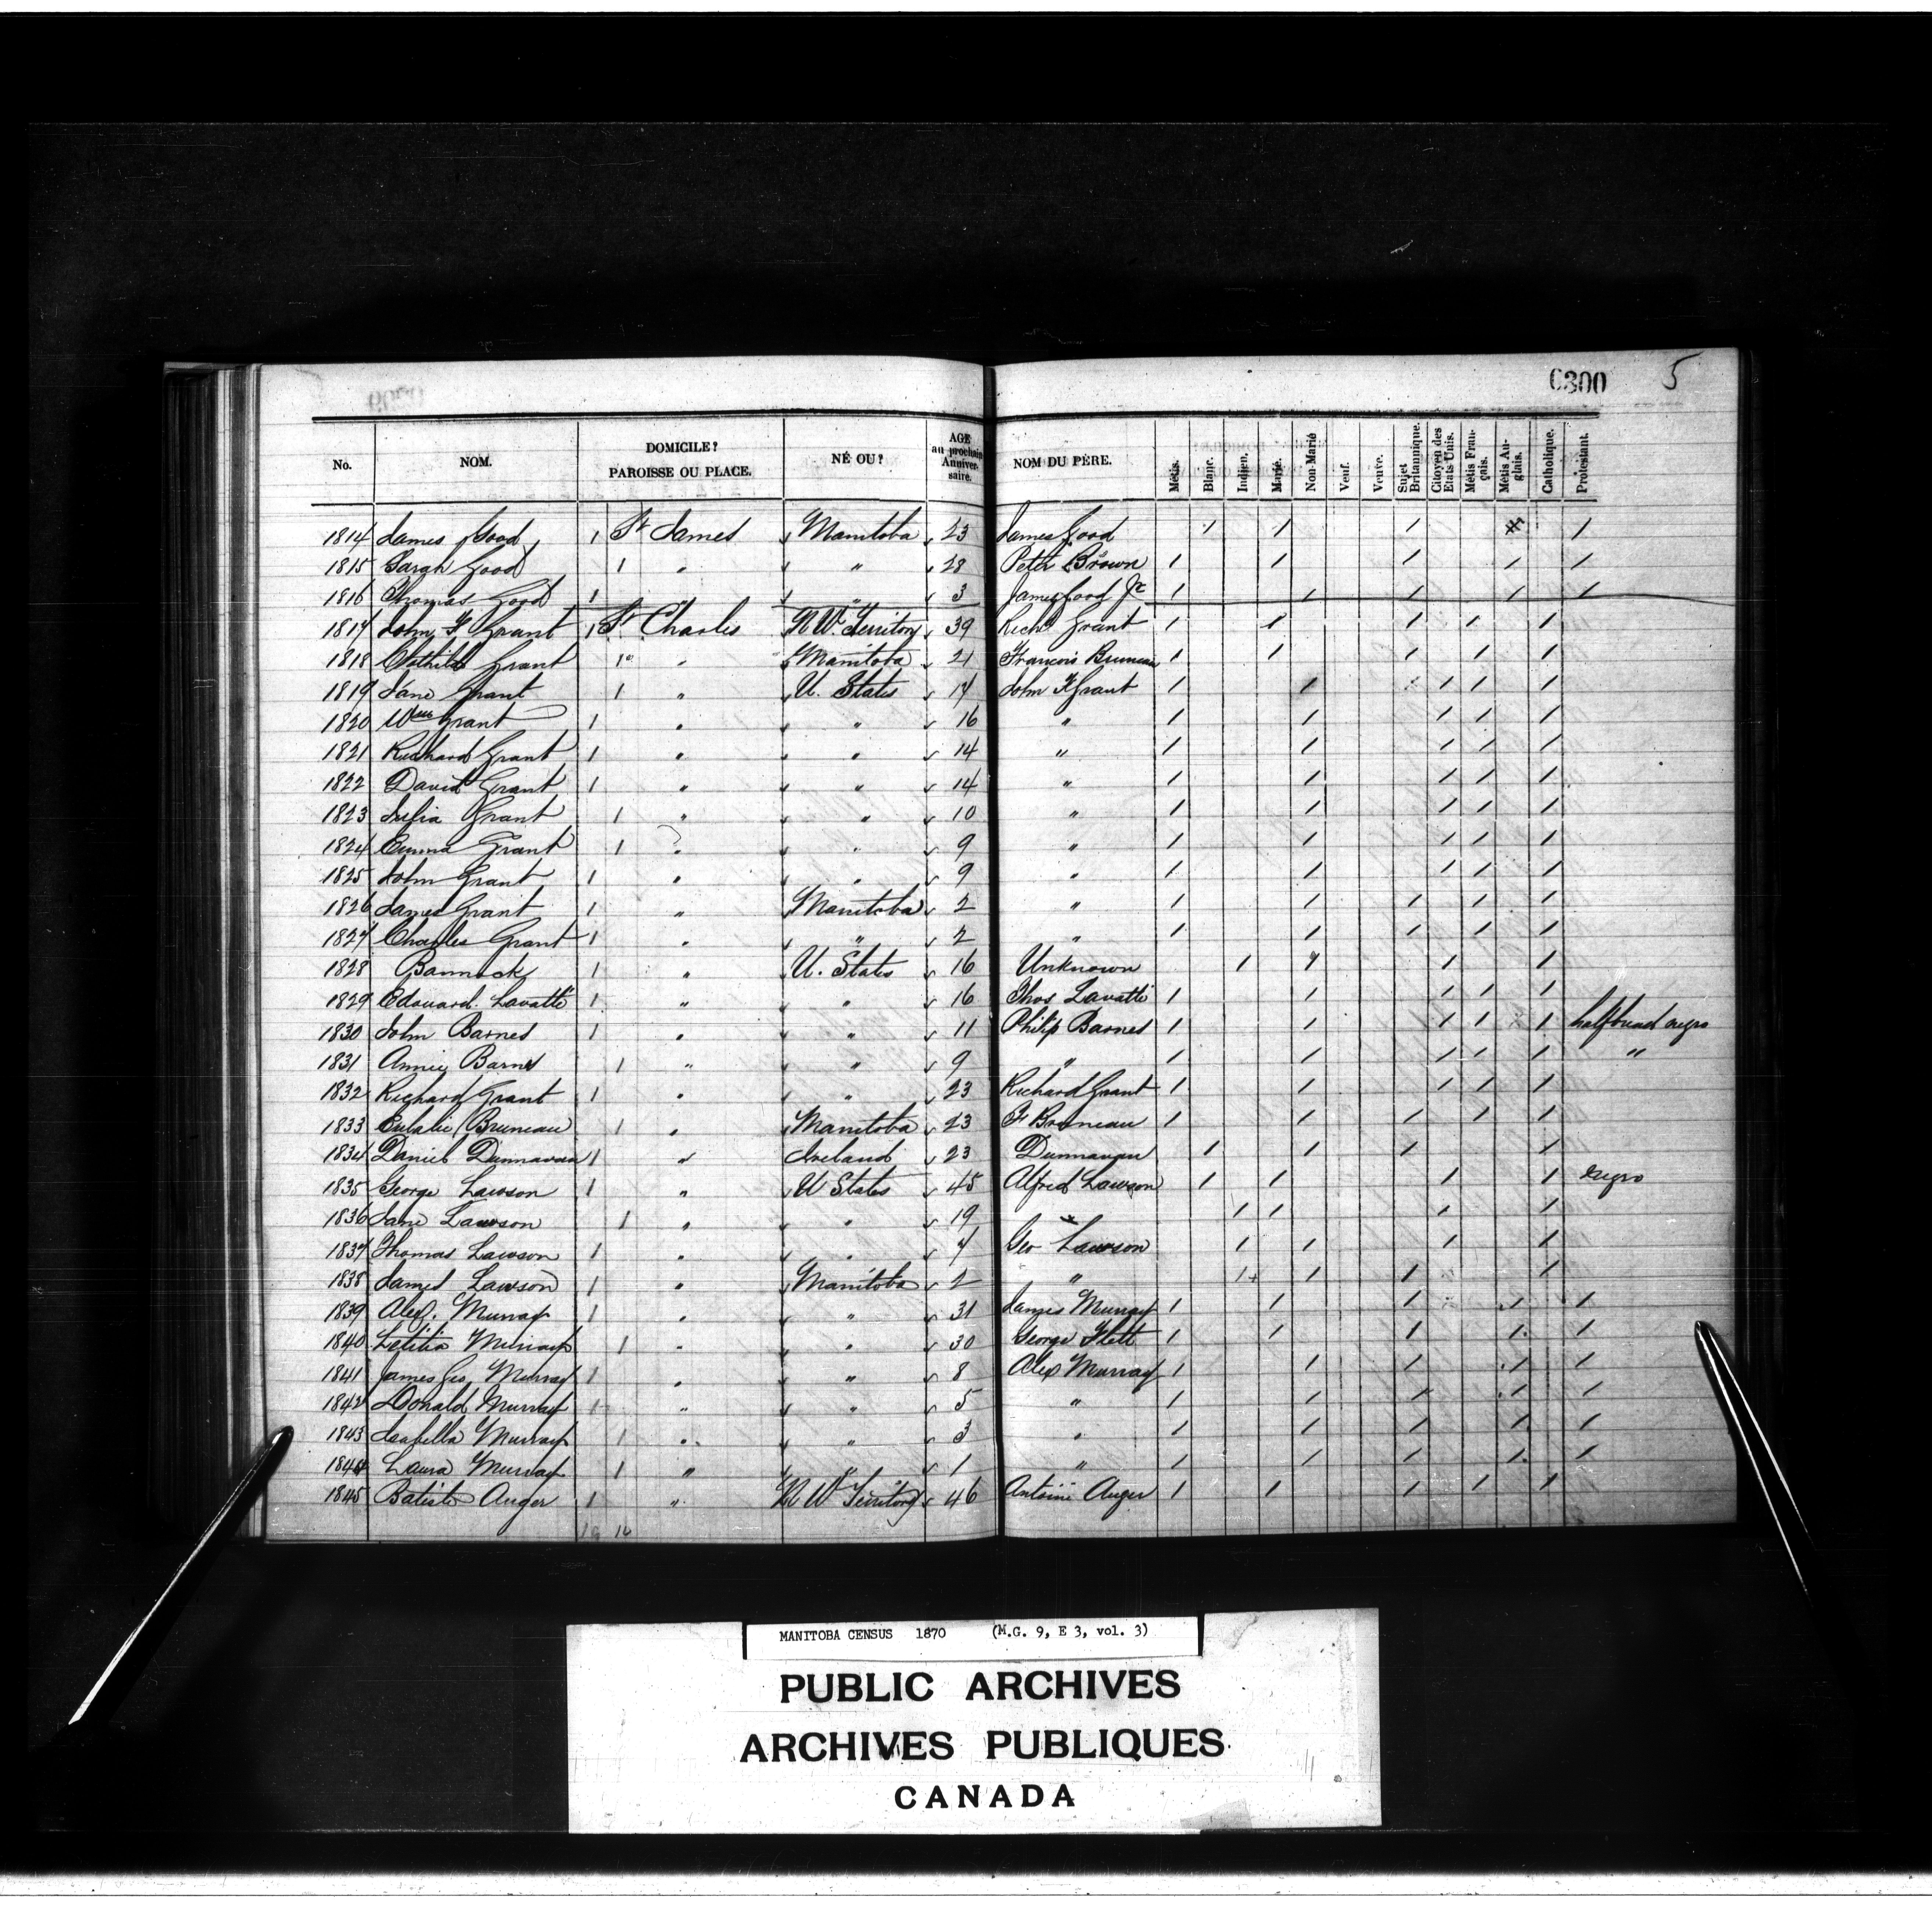 6300 5
No. NOM. DOMICILE? PAROISSE OU PLACE. NÉ OU? AGE au prochain Anniversaire. NOM DU PÈRE. Métis. Blanc. Indien. Marié. Non-Marié Veuf. Veuve. Sujet Britannique. Citoyen des Etats-Unis. Métis Français. Métis Anglais. Catholique. Protestant.
1814 James Good 1 St James Manitoba 23 James Good 1 1 1 1
1815 Sarah Good 1 " " 28 Peter Brown 1 1 1 1 1
1816 Thomas Good 1 " " 3 James Good Jr 1 1 1 1 1
1817 John F Grant 1 St Charles N.W. Territory 39 Richd Grant 1 1 1 1 1
1818 Clothilde Grant 1 " Manitoba 21 Francois Bruneau 1 1 1 1 1
1819 Jane Grant 1 " U. States 17 John F Grant 1 1 1 1 1
1820 Wm Grant 1 " " 16 " 1 1 1 1 1
1821 Richard Grant 1 " " 14 " 1 1 1 1 1
1822 David Grant 1 " " 14 " 1 1 1 1 1
1823 Julia Grant 1 " " 10 " 1 1 1 1 1
1824 Emma Grant 1 " " 9 " 1 1 1 1 1
1825 John Grant 1 " " 9 " 1 1 1 1 1
1826 James Grant 1 " Manitoba 2 " 1 1 1 1 1
1827 Charles Grant 1 " " 2 " 1 1 1 1 1
1828 Bannack 1 " U. States 16 Unknown 1 1 1 1
1829 Edouard Lavatté 1 " " 16 Thos Lavatté 1 1 1 1 1
1830 John Barnes 1 " " 11 Philip Barnes 1 1 1 1 1 halfbreed negro
1831 Annie Barnes 1 " " 9 " 1 1 1 1 1 "
1832 Richard Grant 1 " " 23 Richard Grant 1 1 1 1 1
1833 Eulalie Bruneau 1 " Manitoba 23 F Bruneau 1 1 1 1 1
1834 Daniel Dunnavan 1 " Ireland 23 Dunnavan 1 1 1 1
1835 George Lawson 1 " U States 45 Alfred Lawson 1 1 1 1 negro
1836 Jane Lawson 1 " " 19 1 1 1 1
1837 Thomas Lawson 1 " " 7 Geo Lawson 1 1 1 1
1838 James Lawson 1 " Manitoba 2 " 1 1 1 1
1839 Alex. Murray 1 " " 31 James Murray 1 1 1 1 1
1840 Letitia Murray 1 " " 30 George Flett 1 1 1 1 1
1841 James Geo. Murray 1 " " 8 Alex Murray 1 1 1 1 1
1842 Donald Murray 1 " " 5 " 1 1 1 1 1
1843 Isabella Murray 1 " " 3 " 1 1 1 1 1
1844 Laura Murray 1 " " 1 " 1 1 1 1 1
1845 Batiste Auger 1 " N W Territory 46 Antoine Auger 1 1 1 1 1
MANITOBA CENSUS 1870 (M.G. 9, E 3, vol. 3)
PUBLIC ARCHIVES
ARCHIVES PUBLIQUES
CANADA